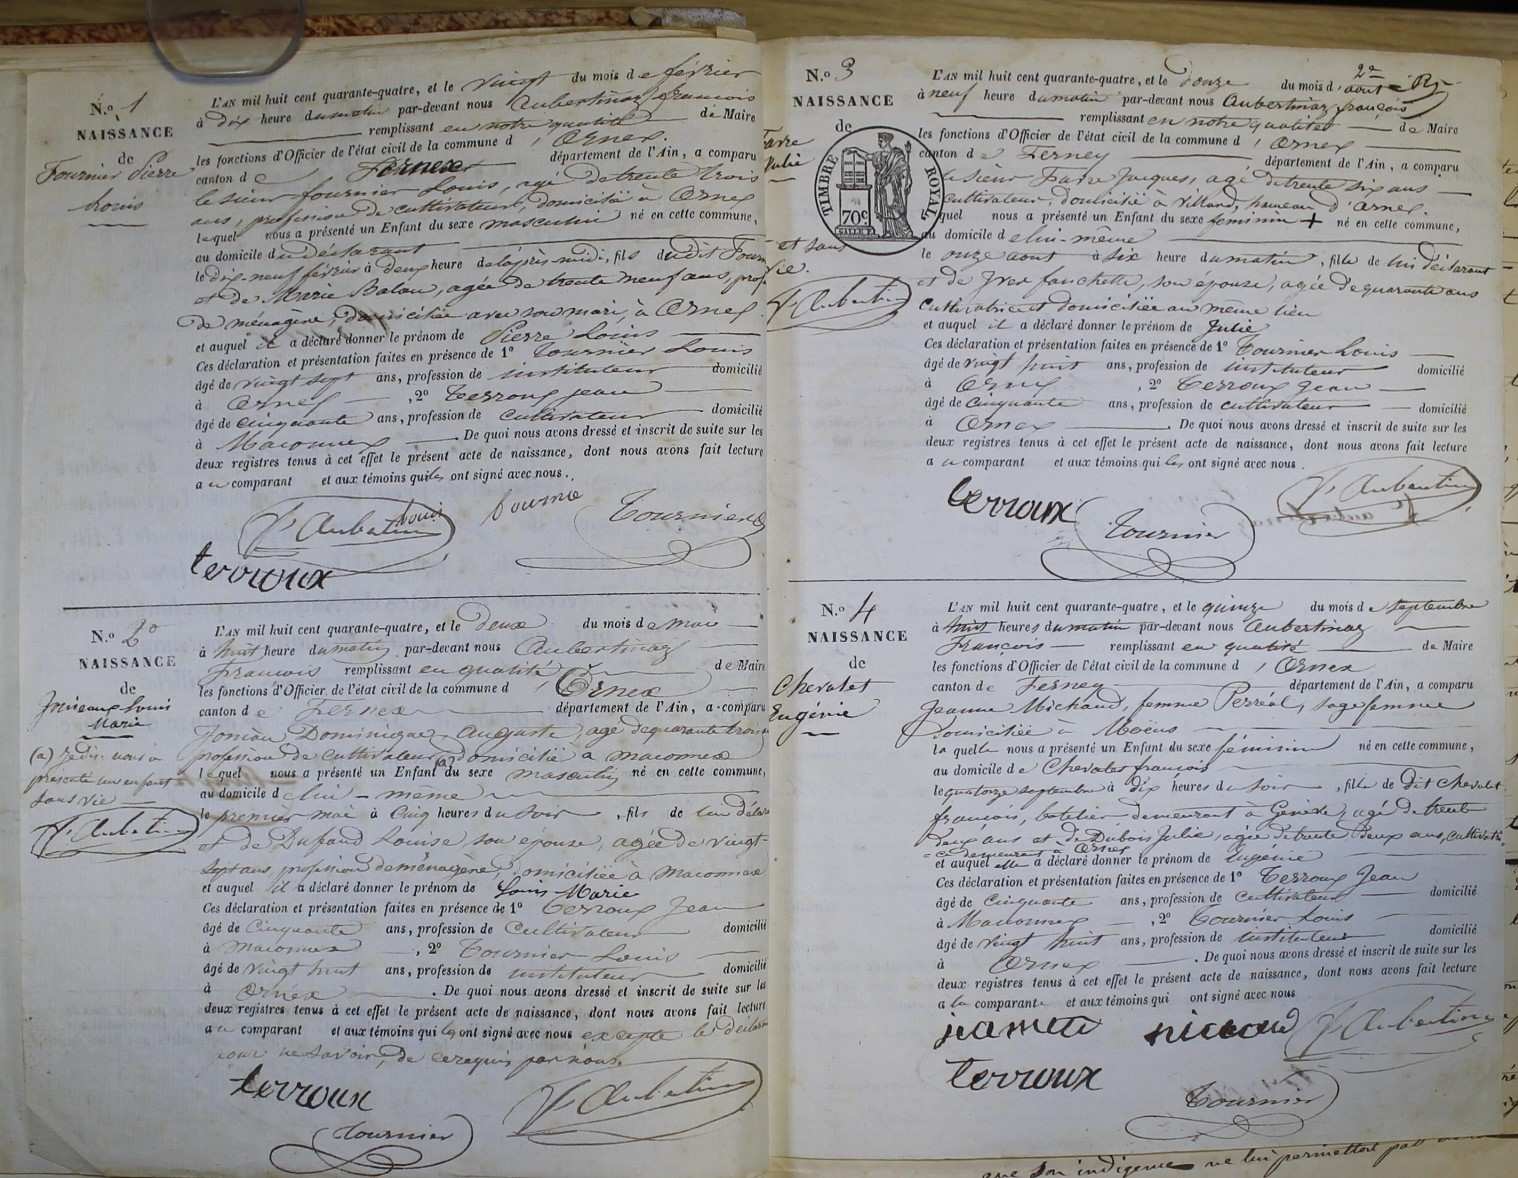 N.o 1
NAISSANCE
de
Fournier Pierre
Louis
L'AN mil huit cent quarante-quatre, et le vingt du mois de février
à dix heure du matin par-devant nous Aubertinaz françois
remplissant en notre qualité de Maire
les fonctions d'Officier de l'état civil de la commune d'Ornex.
canton de Fernex département de l'Ain, a comparu
le sieur fournier Louis, agé de trente trois
ans, profession de cultivateur, domicilié à Ornex
lequel nous a présenté un Enfant du sexe masculin né en cette commune,
au domicile du déclarant
le dix-neuf février à deux heure de l'après midi, fils du dit Fourn
et de Marie Balan, agée de trente neuf ans, prof
de ménagère, domiciliée avec son mari, à Ornex.
et auquel il a déclaré donner le prénom de Pierre Louis
Ces déclaration et présentation faites en présence de 1o Tournier Louis
âgé de vingt sept ans, profession de instituteur domicilié
à Ornex , 2o Terroux jean
âgé de cinquante ans, profession de cultivateur domicilié
à Maconnex . De quoi nous avons dressé et inscrit de suite sur les
deux registres tenus à cet effet le présent acte de naissance, dont nous avons fait lecture
a u comparant et aux témoins qui les ont signé avec nous.
F. Aubertin louis fournié Tournier
terroux
N.o 2o
NAISSANCE
de
Louis
Marie
(a) nous a
présenté un enfant
sans vie
F. Aubertin
L'AN mil huit cent quarante-quatre, et le deux du mois de mai
à huit heure du matin par-devant nous Aubertinaz
François remplissant en qualité de Maire
les fonctions d'Officier de l'état civil de la commune d'Ornex
canton de Fernex département de l'Ain, a comparu
Dominique Auguste, agé de quarante trois
profession de cultivateur (a) domicilié à maconnex
lequel nous a présenté un Enfant du sexe masculin né en cette commune,
au domicile de lui-même
le premier mai à cinq heures du soir , fils de lui décla
et de Dufand Louise, son épouse, agée de vingt
sept ans profession de ménagère, domiciliée à maconnex
et auquel il a déclaré donner le prénom de Louis Marie
Ces déclaration et présentation faites en présence de 1o Terroux Jean
âgé de Cinquante ans, profession de Cultivateur domicilié
à maconnex , 2o Tournier Louis
âgé de vingt huit ans, profession de instituteur domicilié
à Ornex . De quoi nous avons dressé et inscrit de suite sur les
deux registres tenus à cet effet le présent acte de naissance, dont nous avons fait lecture
a u comparant et aux témoins qui les ont signé avec nous excepté le déclara
pour ne savoir, de ce requis par nous.
terroux F. Aubertin
Tournier
N.o 3
NAISSANCE
de
Favre
Julie
TIMBRE ROYAL
70c
et sans
vie.
F. Aubertin
L'AN mil huit cent quarante-quatre, et le douze du mois d'aout
à neuf heure du matin par-devant nous Aubertinaz françois
remplissant en notre qualité de Maire
les fonctions d'Officier de l'état civil de la commune d'Ornex
canton de Ferney département de l'Ain, a comparu
le sieur Favre Jacques, agé de trente six ans
cultivateur, domicilié à Villard, hameau d'Ornex.
lequel nous a présenté un Enfant du sexe feminin + né en cette commune,
au domicile de lui-même
le onze aout à six heure du matin , fille de lui déclarant
et de fanchette, son épouse, agée de quarante ans
Cultivatrice et domiciliée au même lieu
et auquel il a déclaré donner le prénom de Julie
Ces déclaration et présentation faites en présence de 1o Tournier Louis
âgé de vingt huit ans, profession de instituteur domicilié
à Ornex , 2o Terroux jean
âgé de Cinquante ans, profession de cultivateur domicilié
à Ornex . De quoi nous avons dressé et inscrit de suite sur les
deux registres tenus à cet effet le présent acte de naissance, dont nous avons fait lecture
a u comparant et aux témoins qui les ont signé avec nous.
terroux Tournier F. Aubertin
N.o 4
NAISSANCE
de
Chevalet
Eugénie
L'AN mil huit cent quarante-quatre, et le quinze du mois de septembre
à huit heures du matin par-devant nous Aubertinaz
François remplissant en qualité de Maire
les fonctions d'Officier de l'état civil de la commune d'Ornex
canton de Ferney département de l'Ain, a comparu
Jeanne Michaud, femme Perréal, sage femme
Domiciliée à Moëns
laquelle nous a présenté un Enfant du sexe féminin né en cette commune,
au domicile de Chevalet françois
le quatorze septembre à dix heures du soir , fille de dit Chevalet
françois, batelier demeurant à Genève, agé de trente
deux ans et de Dubois Julie, agée de trente deux ans, cultivatri
ce demeurant à Ornex
et auquel elle a déclaré donner le prénom de Eugénie
Ces déclaration et présentation faites en présence de 1o Terroux Jean
âgé de Cinquante ans, profession de cultivateur domicilié
à Maconnex , 2o Tournier Louis
âgé de vingt huit ans, profession de instituteur domicilié
à Ornex . De quoi nous avons dressé et inscrit de suite sur les
deux registres tenus à cet effet le présent acte de naissance, dont nous avons fait lecture
a la comparante et aux témoins qui ont signé avec nous
F. Aubertin
terroux Tournier
que son indigence ne lui permettoit pas